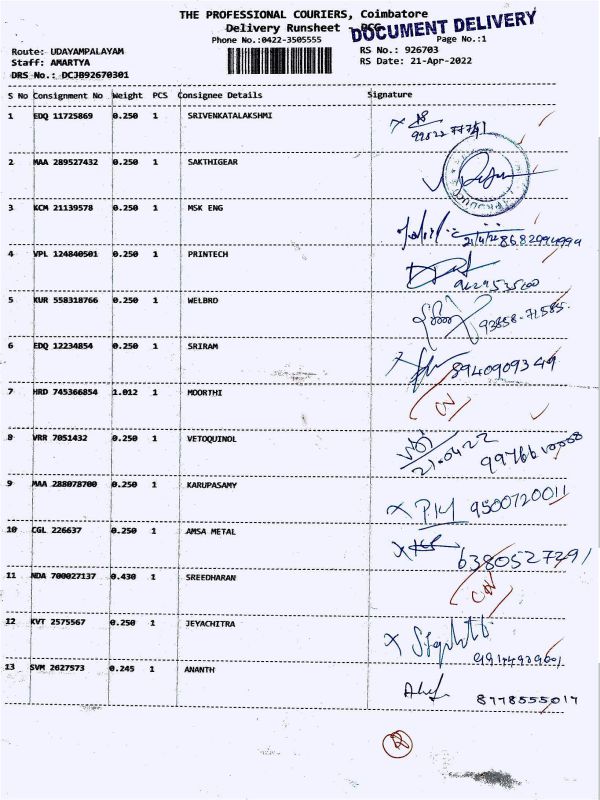 THE PROFESSIONAL COURIERS, Coimbatore
Delivery Runsheet - PCG
DOCUMENT DELIVERY
Phone No.:0422-3505555
Page No.:1
Route: UDAYAMPALAYAM
RS No.: 926703
Staff: AMARTYA
RS Date: 21-Apr-2022
DRS No.: DCJB92670301
S No Consignment No Weight PCS Consignee Details Signature
1 EDQ 11725869 0.250 1 SRIVENKATALAKSHMI
2 MAA 289527432 0.250 1 SAKTHIGEAR
3 KCM 21139578 0.250 1 MSK ENG
21/4/22 8682994994
4 VPL 124840501 0.250 1 PRINTECH
9629535600
5 KUR 558318766 0.250 1 WELBRO
93858-71585
6 EDQ 12234854 0.250 1 SRIRAM
8940909349
7 HRD 745366854 1.012 1 MOORTHI
8 VRR 7051432 0.250 1 VETOQUINOL
21.04.22
9 MAA 288078700 0.250 1 KARUPASAMY
9500720011
10 CGL 226637 0.250 1 AMSA METAL
6380527291
11 NDA 700027137 0.430 1 SREEDHARAN
12 KVT 2575567 0.250 1 JEYACHITRA
13 SVM 2627573 0.245 1 ANANTH
8778555017